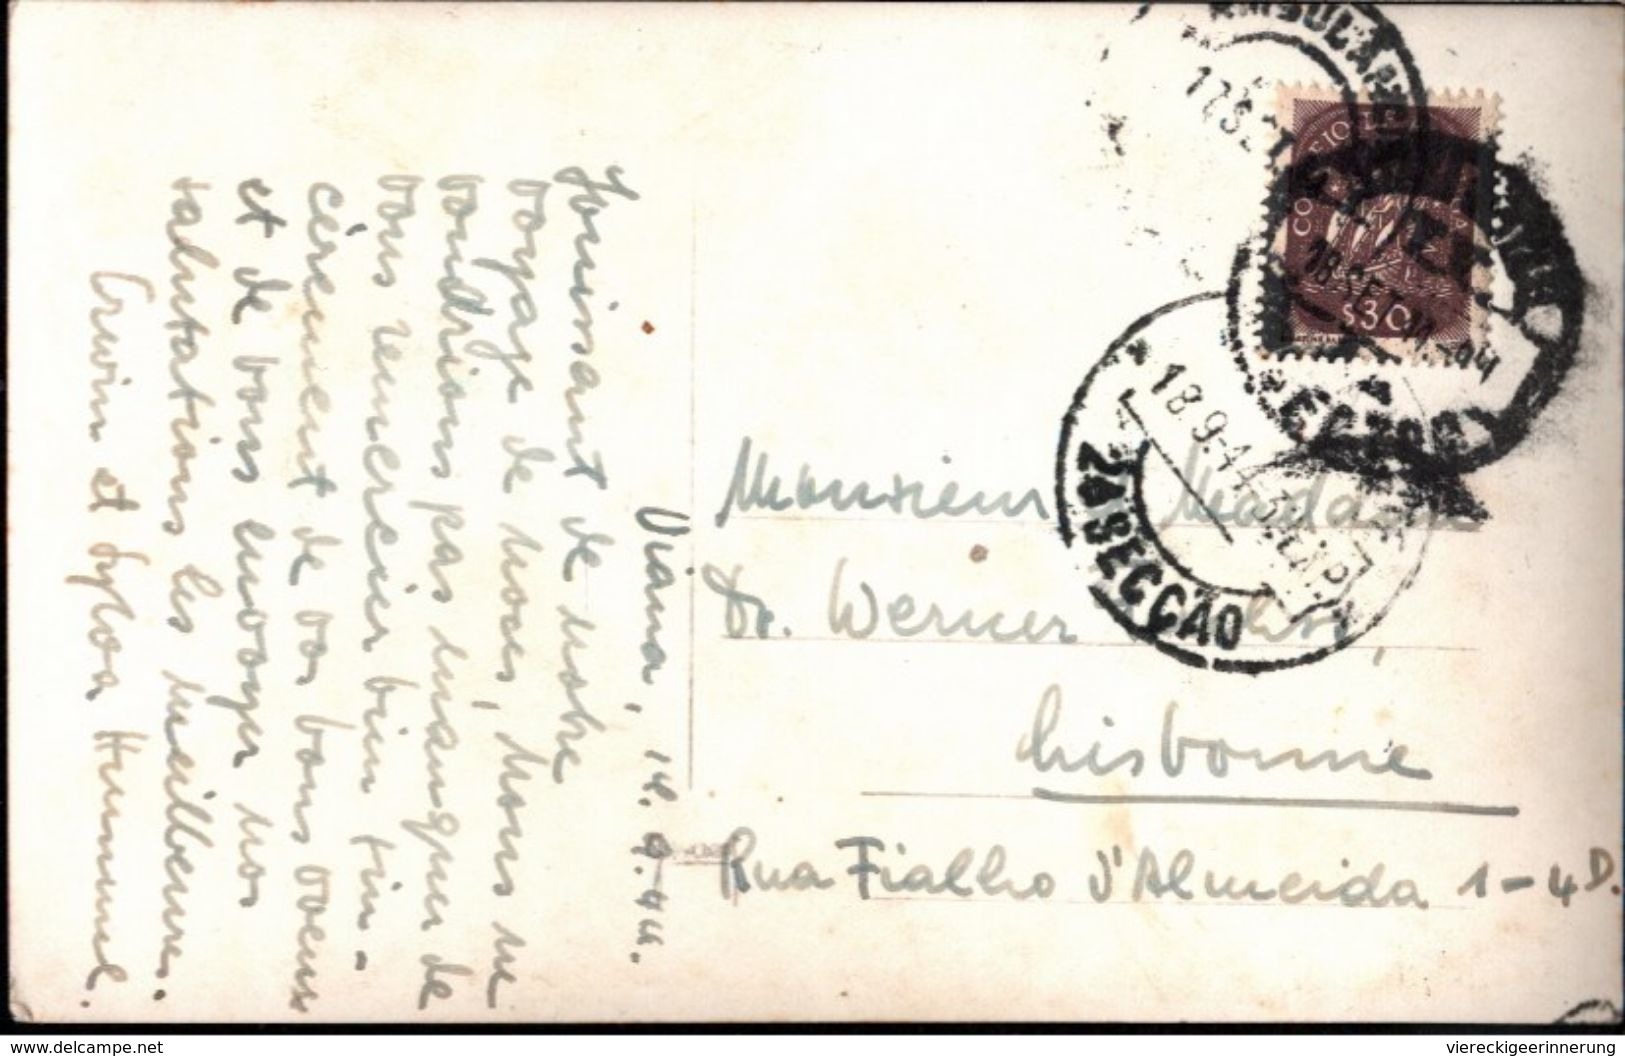 Viana, 14.9.44.
Jouissant de notre
voyage de noces, nous ne
voudrions pas manquer de
vous remercier bien sin-
cèrement de vos bons voeux
et de vous envoyer nos
salutations les meilleures.
Erwin et Sylva Hummel.
CORREIO
$30
17 SET
18 SET 44
18.9.44
2ª SECÇÃO
Monsieur Madame
Dr. Werner
Lisbonne
Rua Fialho d'Almeida 1-4D.
www.delcampe.net
viereckigeerinnerung